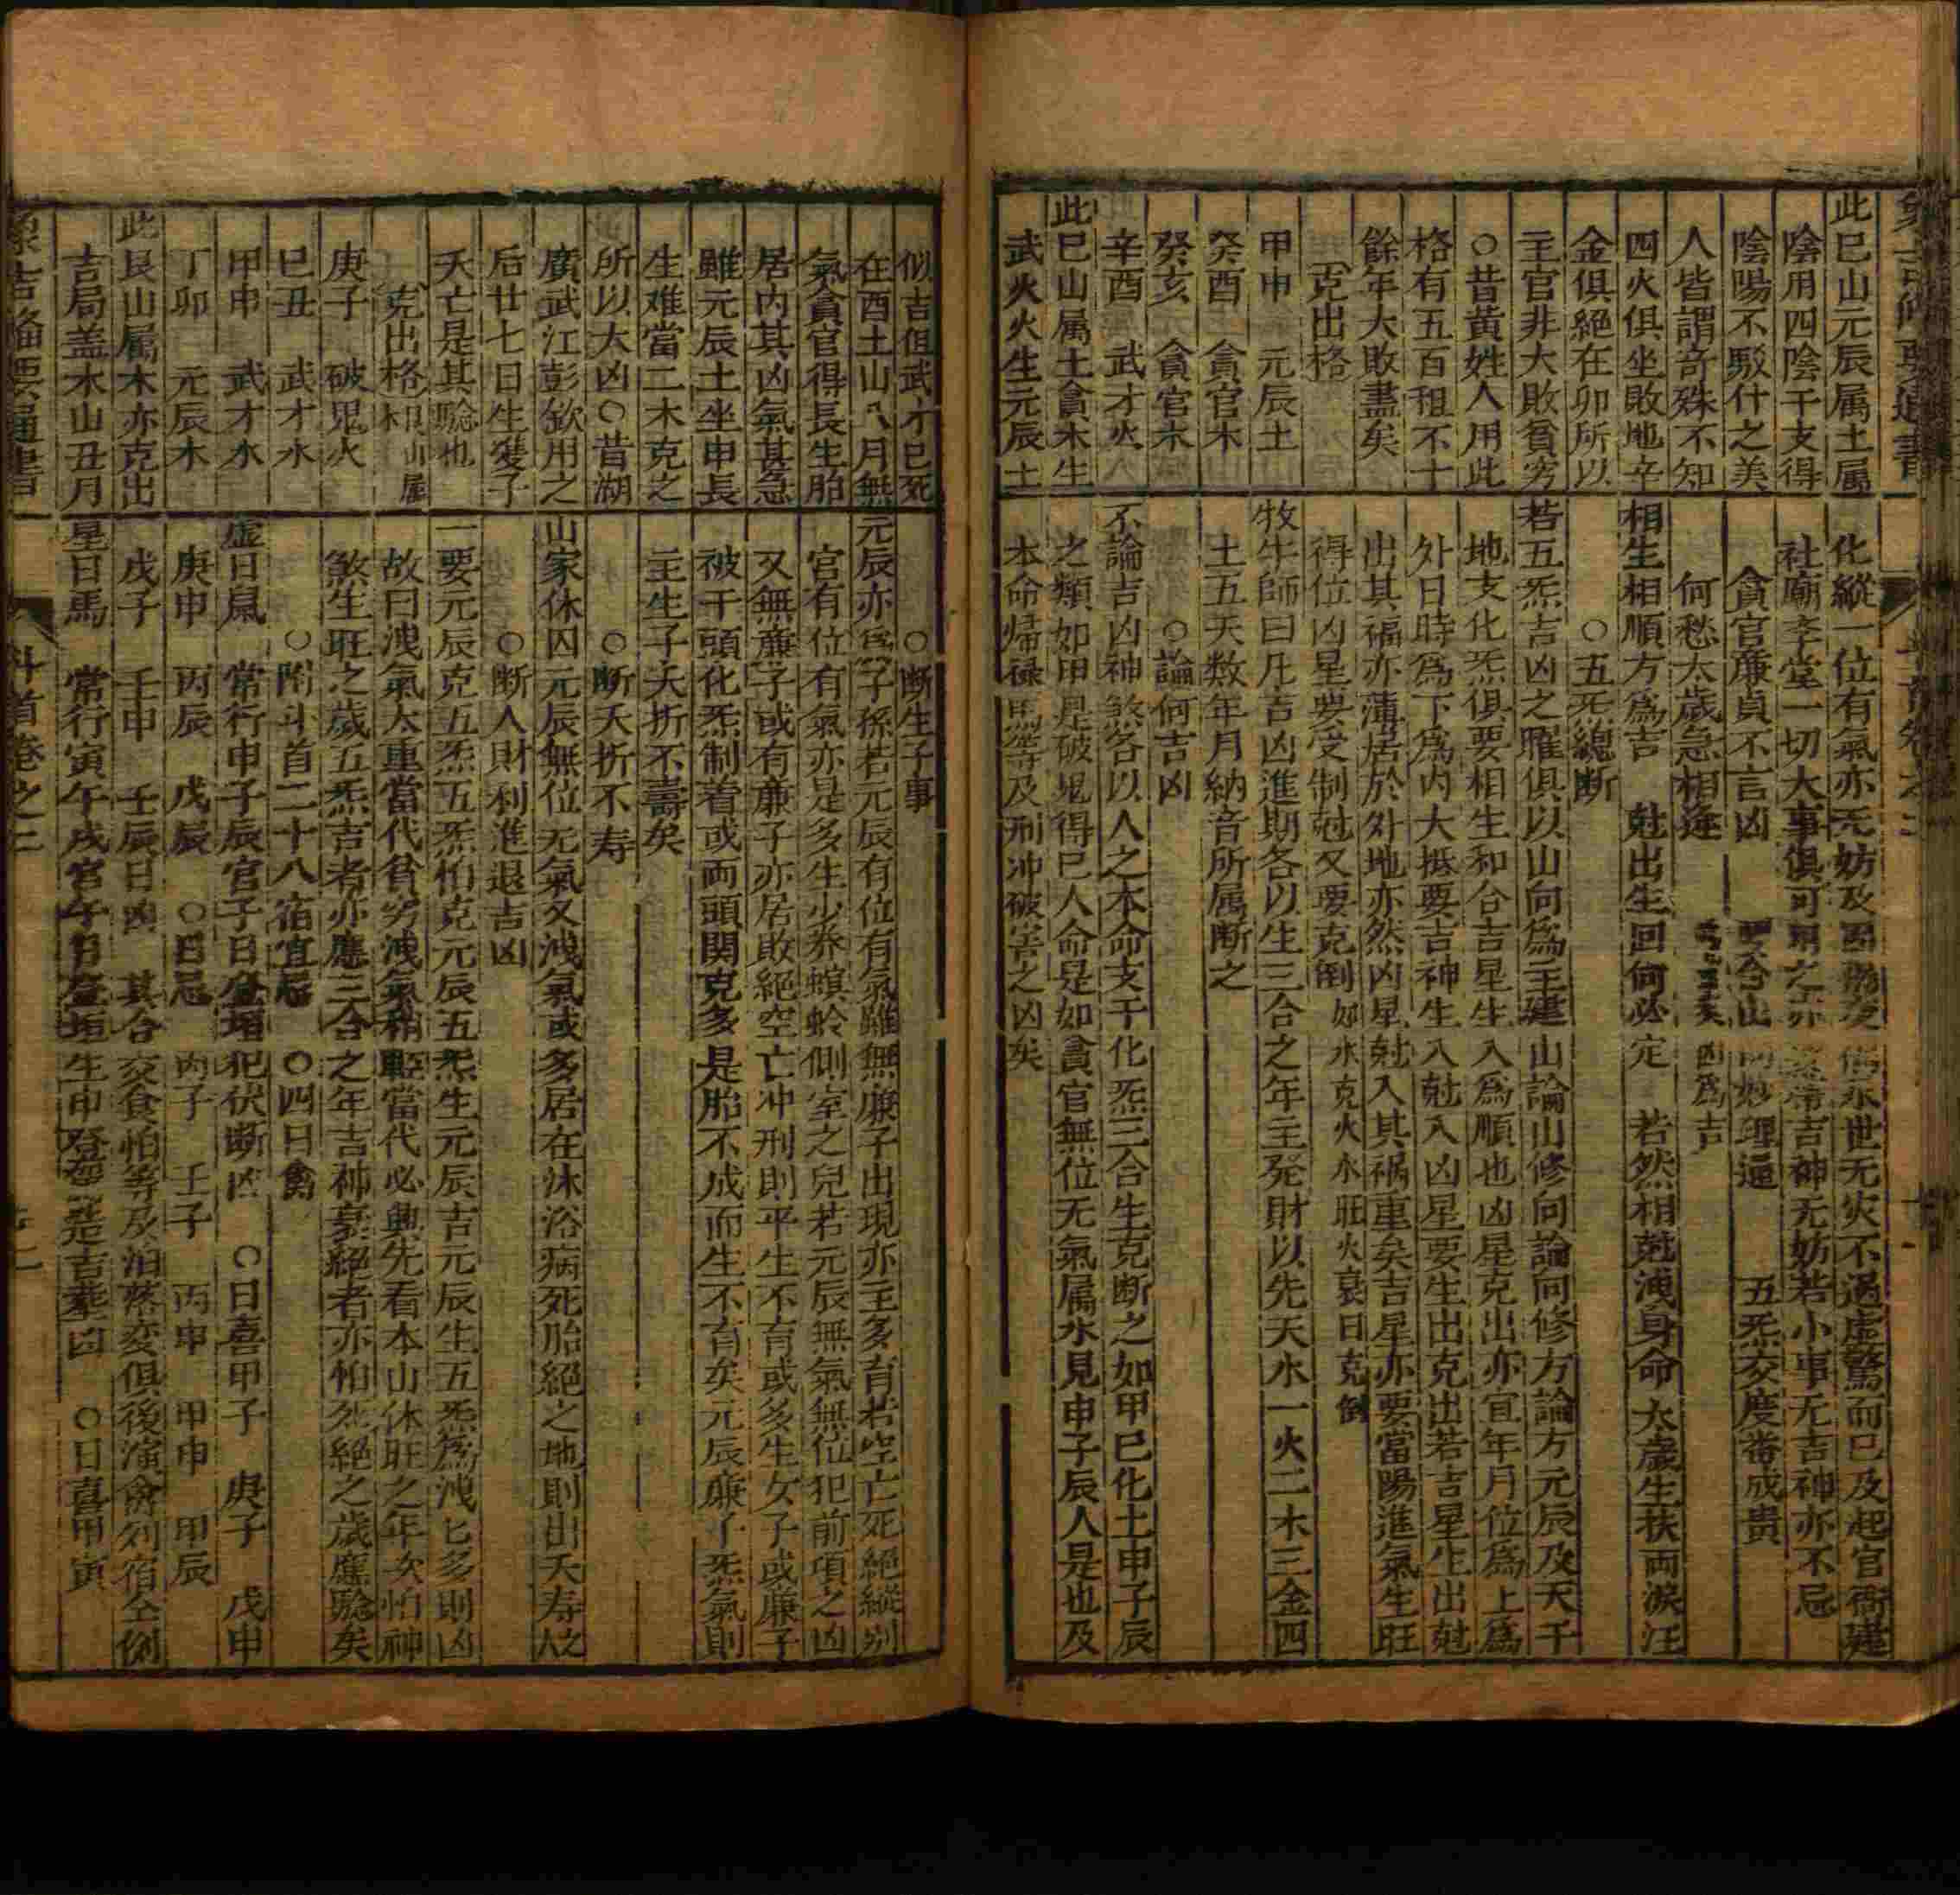 此巳山元辰属土属
陰用四陰干支得
陰陽不駁什之美
人皆謂奇殊不知
四火俱坐敗地辛
金俱絕在卯所以
主官非大敗貧穷
○昔黄姓人用此
格有五百租不十
餘年大敗盡矣
克出格
甲申 元辰土
癸酉 貪官木
癸亥 貪官木
辛酉 武才火
此巳山属土貪木生
武火火生元辰土
化縱一位有氣亦无妨及
永世无灾不過虚驚而已及起官衙建
社廟李堂一切大事俱可用之
吉神无妨若小事无吉神亦不忌
貪官廉貞不言凶
妙理通 五炁交度畨成贵
何愁太歲急相逢
凶為吉
相生相順方為吉 尅出生回何必定 若然相尅洩身命 太歲生扶両淚汪
○五炁總断
若五炁吉凶之曜俱以山向為主建山論山修向論向修方論方元辰及天干
地支化炁俱要相生和合吉星生入為順也凶星克出亦宜年月位為上為
外日時為下為内大抵要吉神生入尅入凶星要生出克出若吉星生出尅
出其福亦薄居於外地亦然凶星尅入其禍重矣吉星亦要當陽進氣生旺
得位凶星要受制尅又要克倒如水克火水旺火衰日克倒
牧牛師曰凡吉凶進期各以生三合之年主発財以先天水一火二木三金四
土五天数年月納音所属断之
○論何吉凶
不論吉凶神煞各以人之本命支干化炁三合生克断之如甲巳化土申子辰
之類如甲是破鬼得巳人命是如貪官無位无氣属水見申子辰人是也及
本命帰禄馬等及刑冲破害之凶矣
似吉但武才巳死
在酉土山八月無
氣貪官得長生胎
居内其凶氣甚急
雖元辰土坐申長
生难當二木克之
所以大凶○昔湖
廣武江彭欽用之
后廿七日生雙子
夭亡是其驗也
克出格 艮山属木
庚子 破鬼火
巳丑 武才水
甲申 武才水
丁卯 元辰木
此艮山属木亦克出
吉局盖木山丑月
○断生子事
元辰亦為子孫若元辰有位有氣雖無廉子出現亦主多育若空亡死絕縱别
官有位有氣亦是多生少养螟蛉側室之兒若元辰無氣無位犯前項之凶
又無廉子或有廉子亦居敗絕空亡冲刑則平生不育或多生女子或廉子
被干頭化炁制着或両頭関克多是胎不成而生不育矣元辰廉子炁氣則
主生子夭折不壽矣
○断夭折不寿
山家休囚元辰無位无氣又洩氣或多居在沐浴病死胎絕之地則出夭寿人
○断人財利進退吉凶
一要元辰克五炁五炁怕克元辰五炁生元辰吉元辰生五炁為洩匕多則凶
故曰洩氣太重當代貧穷洩氣稍輕當代必興先看本山休旺之年次怕神
煞生旺之歲五炁吉者亦應三合之年吉神衰絕者亦怕死絕之歲應驗矣
○附斗首二十八宿宜忌 ○四日禽
虚日鼠 常行申子辰宫子日登垣犯伏断凶 ○日喜甲子 庚子 戊申
庚申 丙辰 戊辰 ○日忌 丙子 壬子 丙申 甲申 甲辰
戊子 壬申 壬辰日凶 其合交食怕等及泊落変俱後演禽列宿全例
星日馬 常行寅午戌宫午日登垣生申登駕造吉葬凶 ○日喜甲寅
象吉俻要通書
斗首卷之二